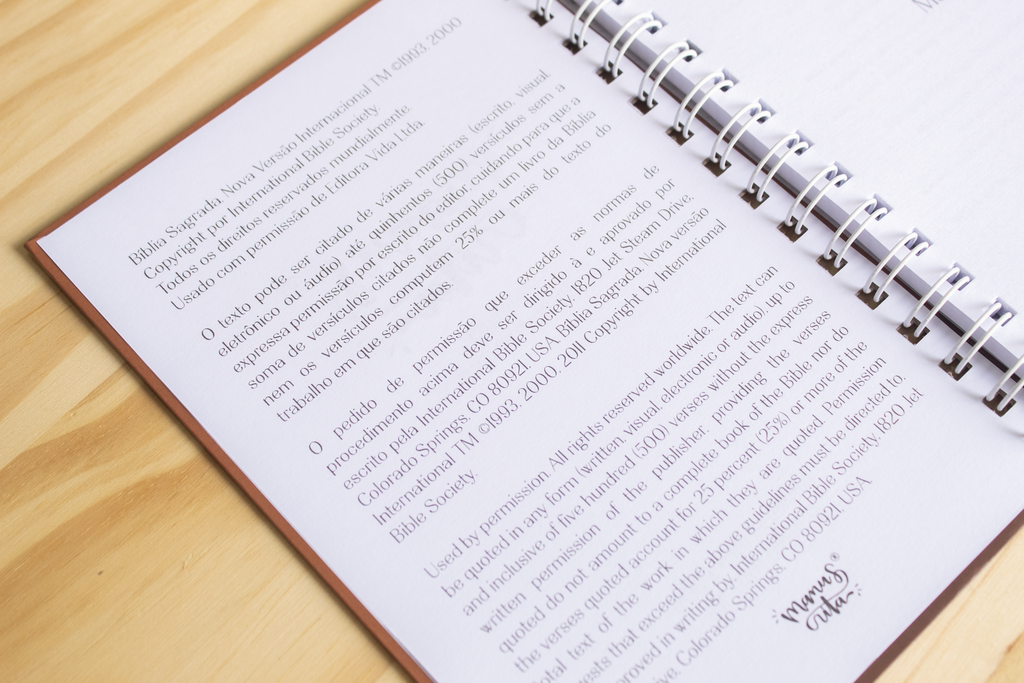 Bíblia Sagrada, Nova Versão Internacional TM ©1993, 2000
Copyright por International Bible Society
Todos os direitos reservados mundialmente.
Usado com permissão de Editora Vida Ltda.
O texto pode ser citado de várias maneiras (escrito, visual,
eletrônico ou áudio) até quinhentos (500) versículos sem a
expressa permissão por escrito do editor cuidando para que a
soma de versículos citados não complete um livro da Bíblia
nem os versículos computem 25% ou mais do texto do
trabalho em que são citados.
O pedido de permissão que exceder as normas de
procedimento acima deve ser dirigido à e aprovado por
escrito pela International Bible Society, 1820 Jet Steam Drive,
Colorado Springs, CO 80921, USA. Bíblia Sagrada, Nova versão
International TM ©1993, 2000, 2011 Copyright by International
Bible Society.
Used by permission. All rights reserved worldwide. The text can
be quoted in any form (written, visual, electronic or audio), up to
and inclusive of five hundred (500) verses without the express
written permission of the publisher, providing the verses
quoted do not amount to a complete book of the Bible nor do
the verses quoted account for 25 percent (25%) or more of the
total text of the work in which they are quoted. Permission
ests that exceed the above guidelines must be directed to,
roved in writing by, International Bible Society, 1820 Jet
ive, Colorado Springs, CO 80921, USA
Mimus
Gika
®
M